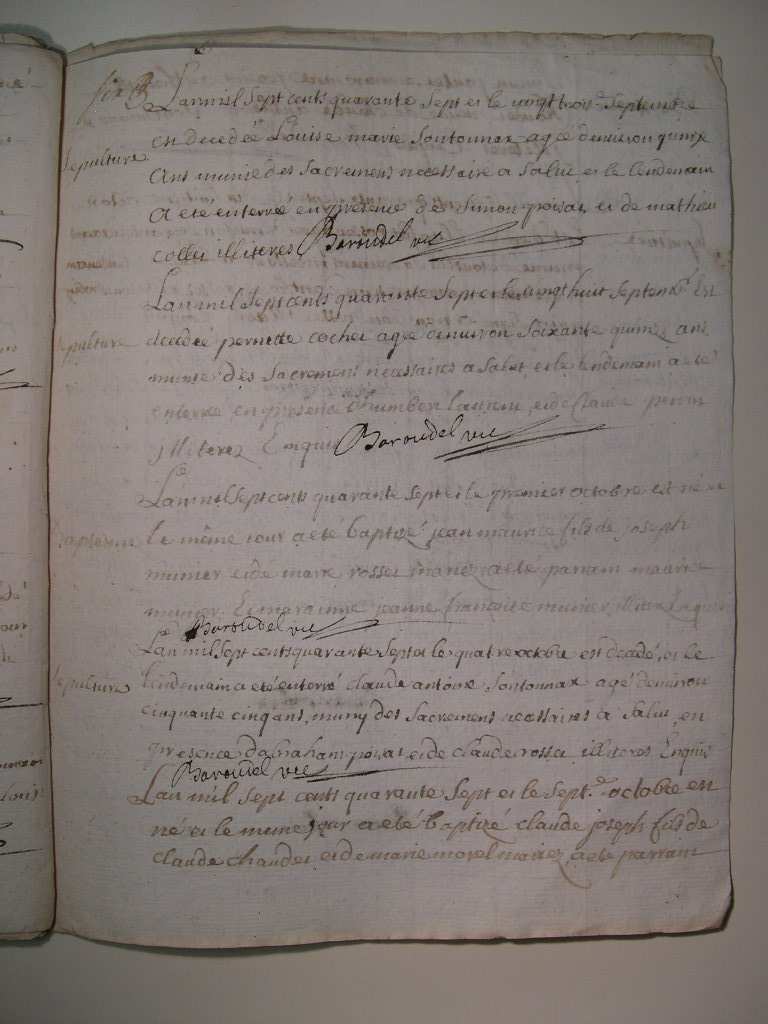 six
Lan mil sept cents quarante sept et le vingt trois septembre
Sepulture
en decedeé Louise marie Sontonnax ageé denviron quinze
ans munie des sacremens necessaire a salut et le lendemain
a eté enterreé en presence de Simon poisat et de mathieu
collet illiteres Baroudel vic
Lan mil sept cents quarante sept et le vingt huit septemb. Est
Sepulture
decedeé pernette cochet ageé denviron soixante quinze ans
munie des sacremens necessaires a salut et le lendemain a eté
enterreé en presence humbert laurent et de Claude perrin
illiterez Enquis Baroudel vic
Lan mil sept cents quarante sept et le premier octobre est né et
Baptesme
le même iour a eté baptizé jean maurice fils de joseph
munier et de marie rosset mariez a eté parrain maurice
munier Et maraine jeanne françoise munier illiterez Enquis
Baroudel vic
Lan mil sept cents quarante sept et le quatre octobre est decedé, et le
Sepulture
lendemain a eté enterré claude antoine Sontonnax agé denviron
cinquante cinq ans, muny des sacremens necessaires a salut, en
presence dabraham poisat et de claude rosset illiteres Enquis
Baroudel vic
Lan mil sept cents quarante sept et le sept. octobre en
né et le meme jour a eté baptizé claude joseph fils de
claude chaudet et de marie morel mariez, a eté parrain